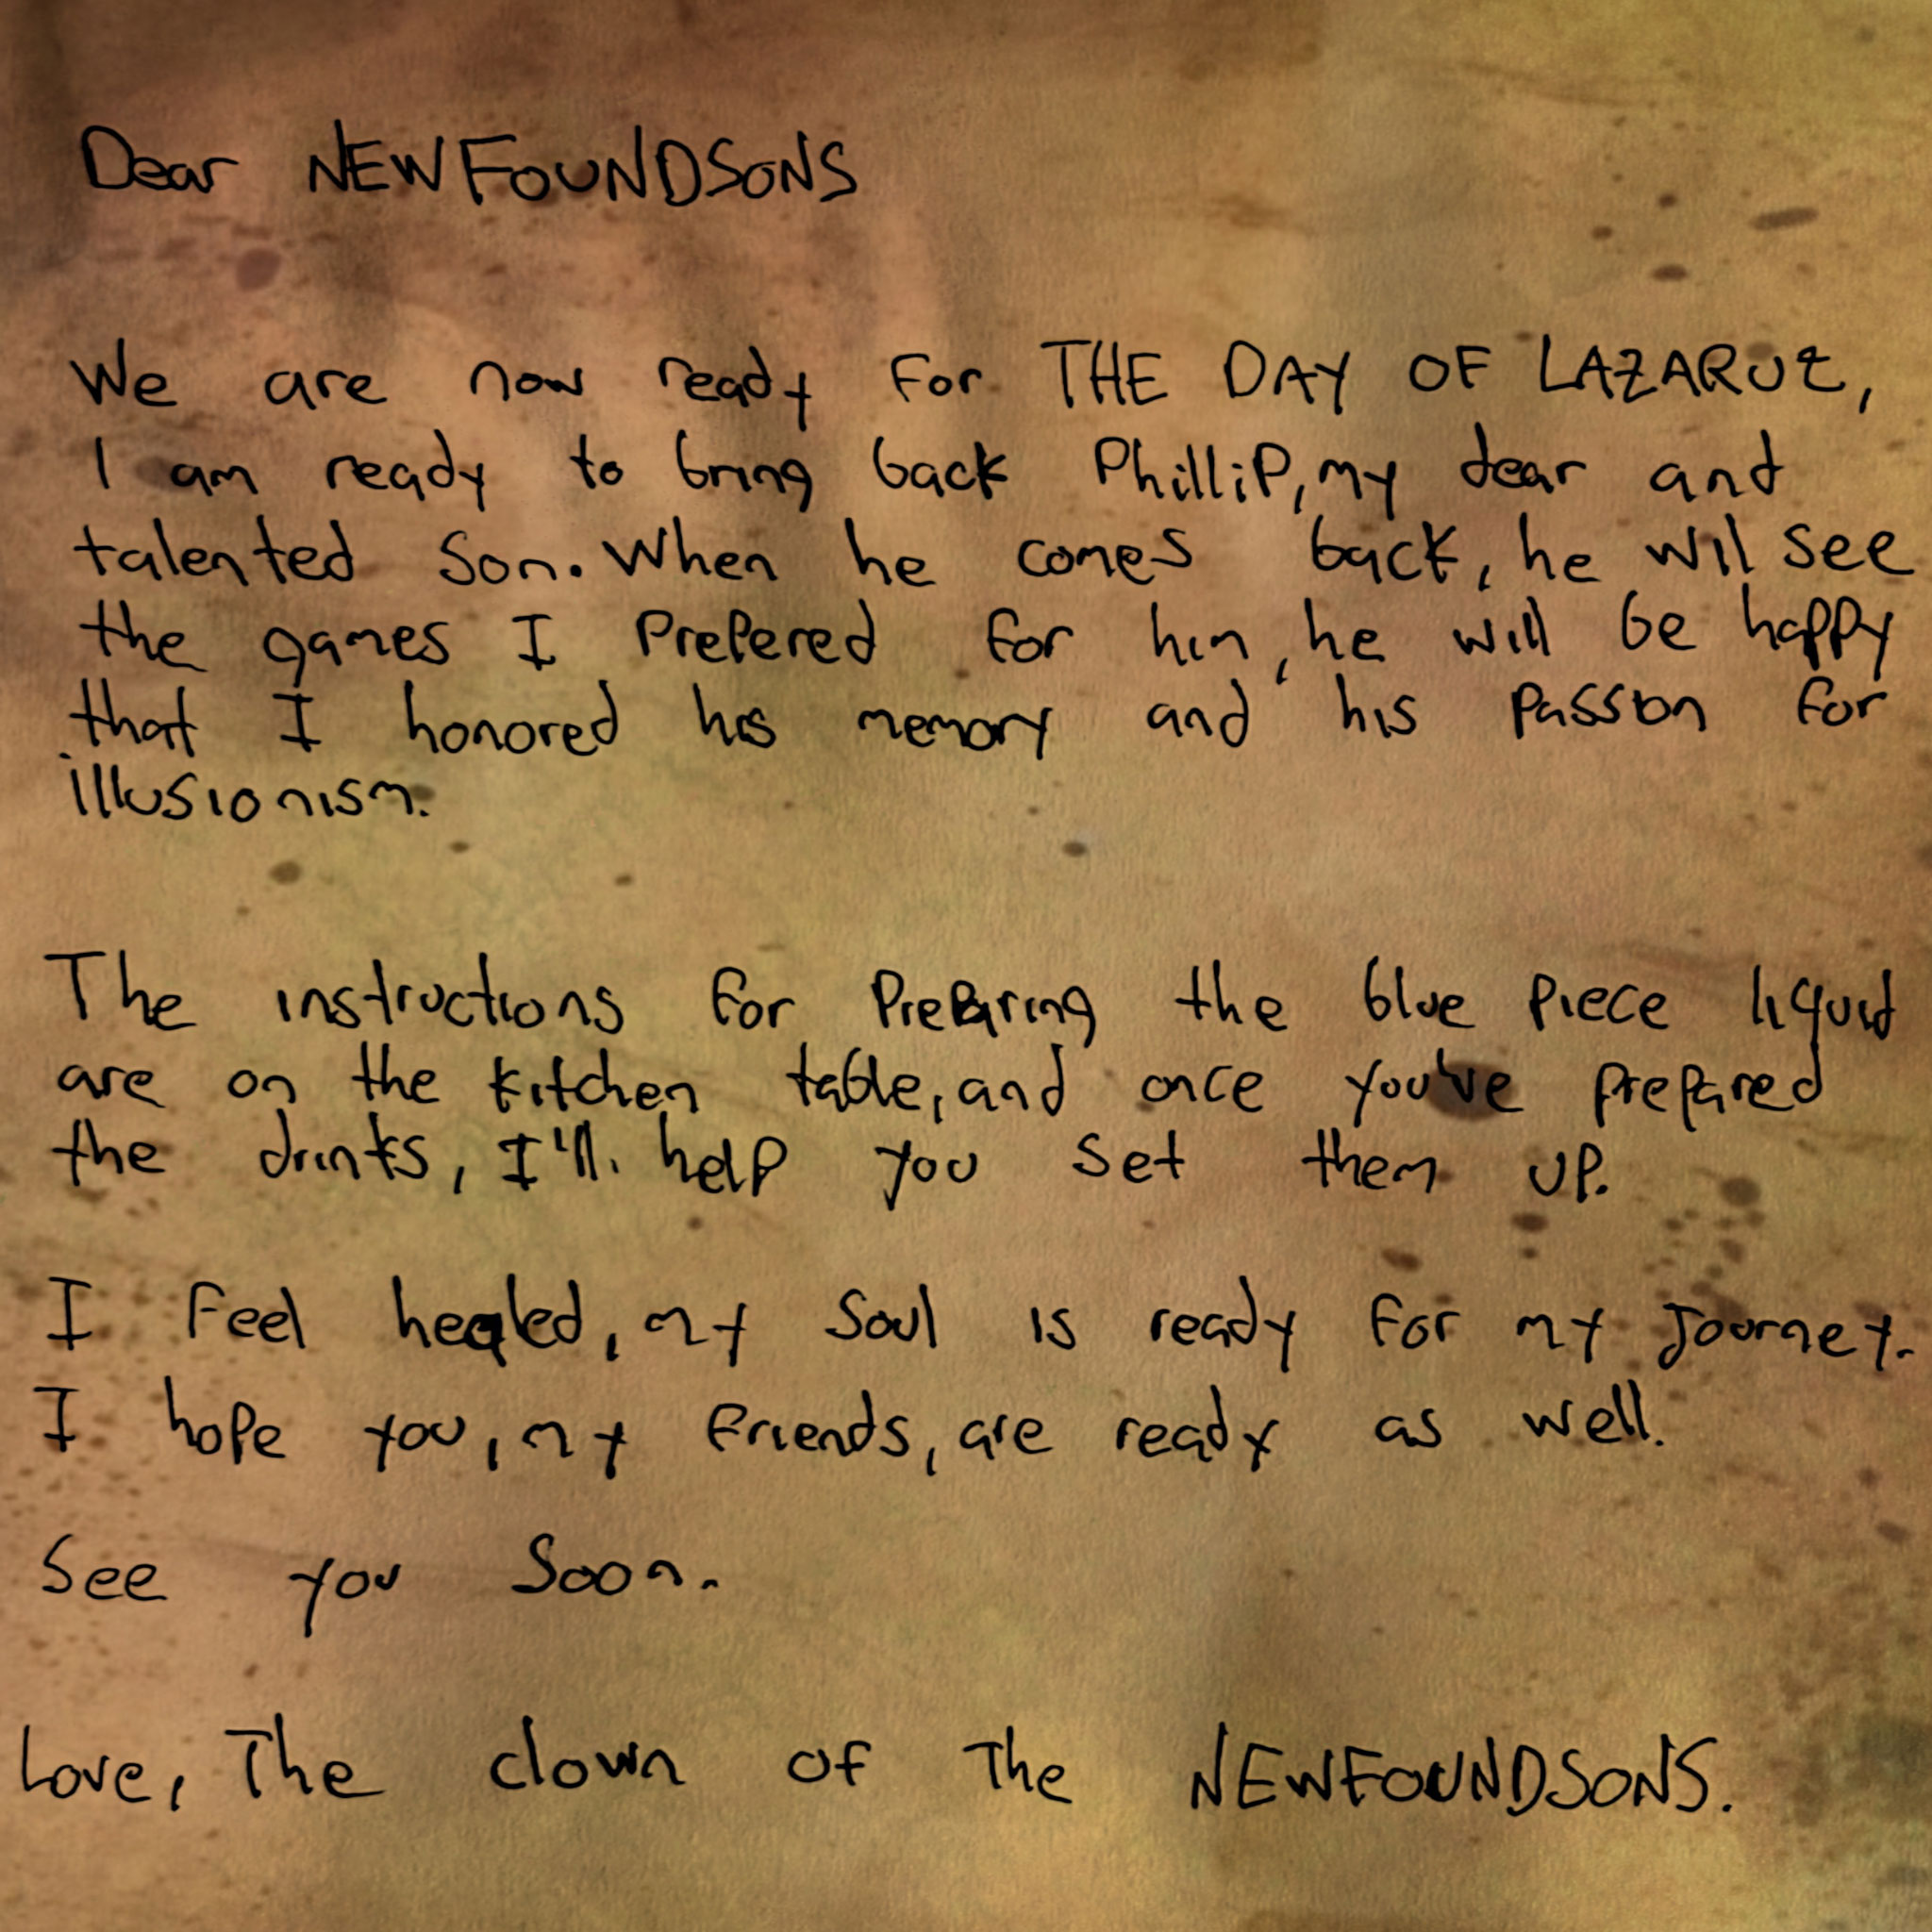 Dear NEWFOUNDSONS
We are now ready for THE DAY OF LAZARUZ,
I am ready to bring back Phillip, my dear and
talented son. When he comes back, he wil see
the games I prepered for him, he will be happy
that I honored his memory and his passion for
illusionism.
The instructions for preparing the blue piece liquid
are on the kitchen table, and once you've prepared
the drinks, I'll help you set them up.
I feel healed, my soul is ready for my journey.
I hope you, my friends, are ready as well.
See you soon.
Love, The clown of The NEWFOUNDSONS.